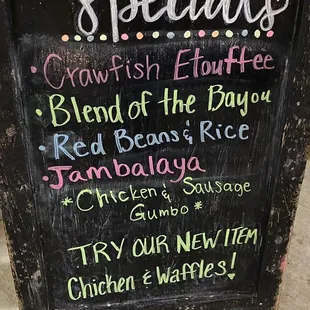 Specials
• Crawfish Etouffee
• Blend of the Bayou
• Red Beans & Rice
• Jambalaya
*Chicken & Sausage
Gumbo*
TRY OUR NEW ITEM
Chicken & Waffles!